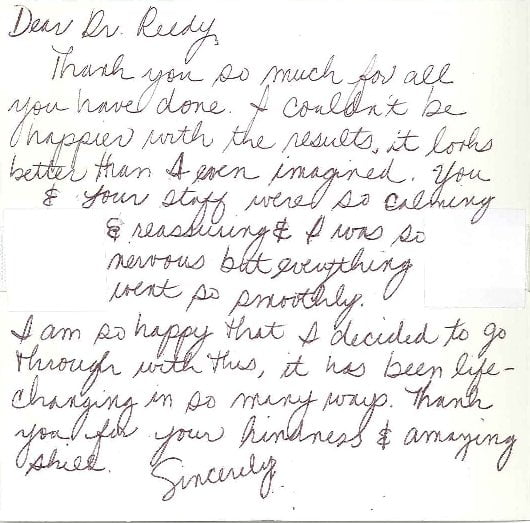 Dear Dr. Reedy,
Thank you so much for all
you have done. I couldn't be
happier with the results, it looks
better than I even imagined. You
& your staff were so calming
& reassuring & I was so
nervous but everything
went so smoothly.
I am so happy that I decided to go
through with this, it has been life-
changing in so many ways. Thank
you for your kindness & amazing
skill.
Sincerely,